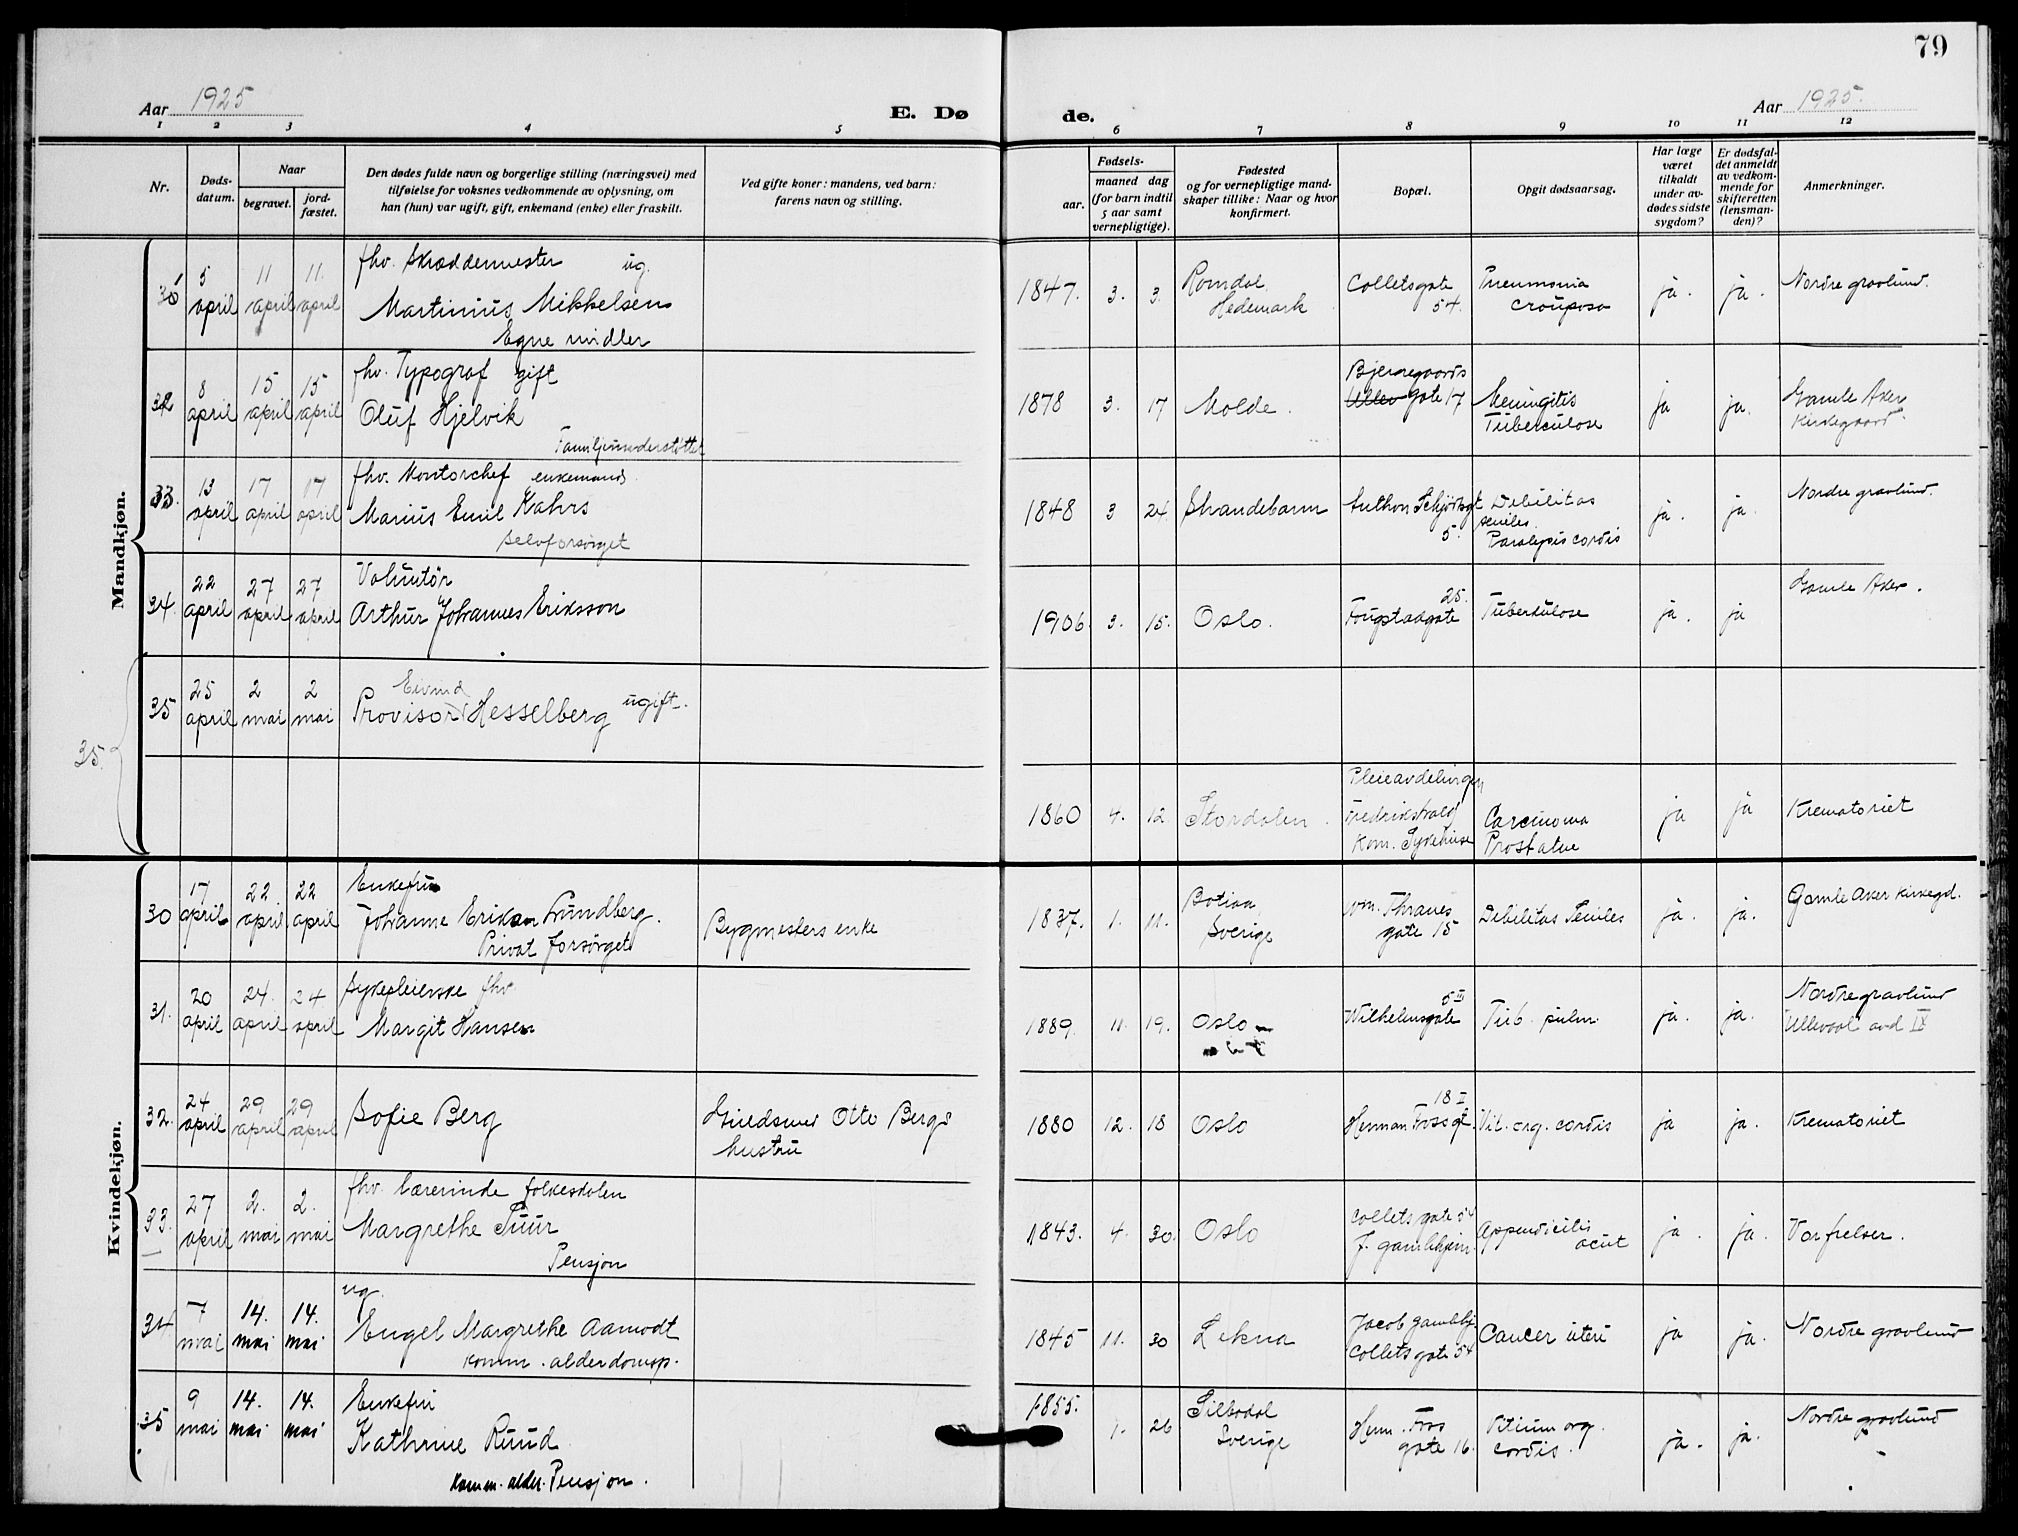 79
Aar 1925
E. Dø
de.
Aar 1925.
1 2 3 4 5 6 7 8 9 10 11 12
Nr.
Døds-
datum.
Naar
begravet.
jord-
fæstet.
Den dødes fulde navn og borgerlige stilling (næringsvei) med
tilføielse for voksnes vedkommende av oplysning, om
han (hun) var ugift, gift, enkemand (enke) eller fraskilt.
Ved gifte koner: mandens, ved barn:
farens navn og stilling.
Fødsels-
aar.
maaned dag
(for barn indtil
5 aar samt
vernepligtige).
Fødested
og for vernepligtige mand-
skaper tillike: Naar og hvor
konfirmert.
Bopæl.
Opgit dødsaarsag.
Har læge
været
tilkaldt
under av-
dødes sidste
sygdom?
Er dødsfal-
det anmeldt
av vedkom-
mende for
skifteretten
(lensman-
den)?
Anmerkninger.
Mandkjøn.
5 april 11 april 11 april
fhv. Skræddermester ug.
Martinius Mikkelsen
Egne midler
1847. 3. 3.
Romdal
Hedemark
Colletsgate
54.
Pneumonia
crouposa
ja. ja. Nordre gravlund.
32 8 april 15 april 15 april
fhv. Typograf gift
Oluf Hjelvik
Familjeunderstøttet
1878 3. 17 Molde.
Bjerregaards
Ullev gate 17
Meningitis
Tuberculose
ja ja. Gamle Aker
Kirkegaard
33. 13 april 17 april 17 april
fhv. Kontorchef enkemand.
Marius Emil Kahrs
selvforsørget
1848 3 24 Strandebarm
Anthon Schjødtsgt
5.
Debilitas
seniles.
Paralysis cordis
ja. ja. Nordre gravlund.
34. 22 april 27 april 27 april
Voluntør
Arthur Johannes Eriksson
1906. 3. 15. Oslo.
25.
Fougstadgate
Tuberkulose
ja. ja Gamle Aker.
35 25 april 2 mai 2 mai
Eivind
Provisor Hesselberg ugift.
35.
1860 4. 12. Stordalen.
Pleieavdelingen
Fredrikstad
Kom. Sykehuse
Carcinoma
Prostatae
ja ja Krematoriet
Kvindekjøn.
30 17 april 22 april 22 april
Enkefru
Johanne Eriksen Lundberg.
Privat forsørget
Bygmesters enke
1837. 1. 11.
Sverige
Wm. Thranes
gate 15
Debilitas Seniles
ja. ja. Gamle Aker kirkegd.
31. 20 april 24. april 24 april
Sykepleierske fhv.
Margit Hansen
1889. 11. 19. Oslo
5 III
Wilhelmsgate
Tub. pulm.
ja. ja. Nordre gravlund
Ullevaal avd IX
32. 24 april 29 april 29 april
Sofie Berg
Guldsmed Otto Bergs
hustru
1880 12. 18 Oslo
18 I
Herman Foss gt.
Vit. org. cordis
ja ja. Krematoriet
33. 27 april 2. mai 2. mai
fhv. Lærerinde folkeskolen
Margrethe Tuur
Pensjon
1843. 4. 30. Oslo
Collets gate 54
J. gamlehjem.
Appendicitis
acut
ja. ja. Vor frelser.
34 7 mai 14. mai 14. mai
ug.
Engel Margrethe Aamodt
komm. alderdomsp.
1845 11. 30
Jacob gamlehj.
Collets gate 54
Cancer uteri
ja ja. Nordre gravlund
35 9 mai 14. mai 14. mai
Enkefru
Kathrine Ruud
Komm. alder. Pensjon.
1855. 1. 26
Silbodal
Sverige
Herm. Foss
gate 16.
Vitium org.
cordis.
ja. ja. Nordre gravlund